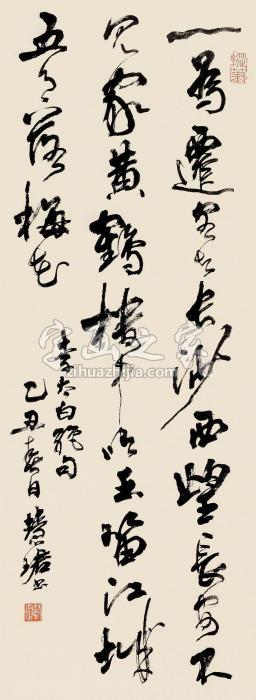 一為遷客去長沙西望長安不
見家黃鶴樓中吹玉笛江城
五月落梅花
李太白絕句
己丑春日慧珺書
字画之家
zihuazhijia.com